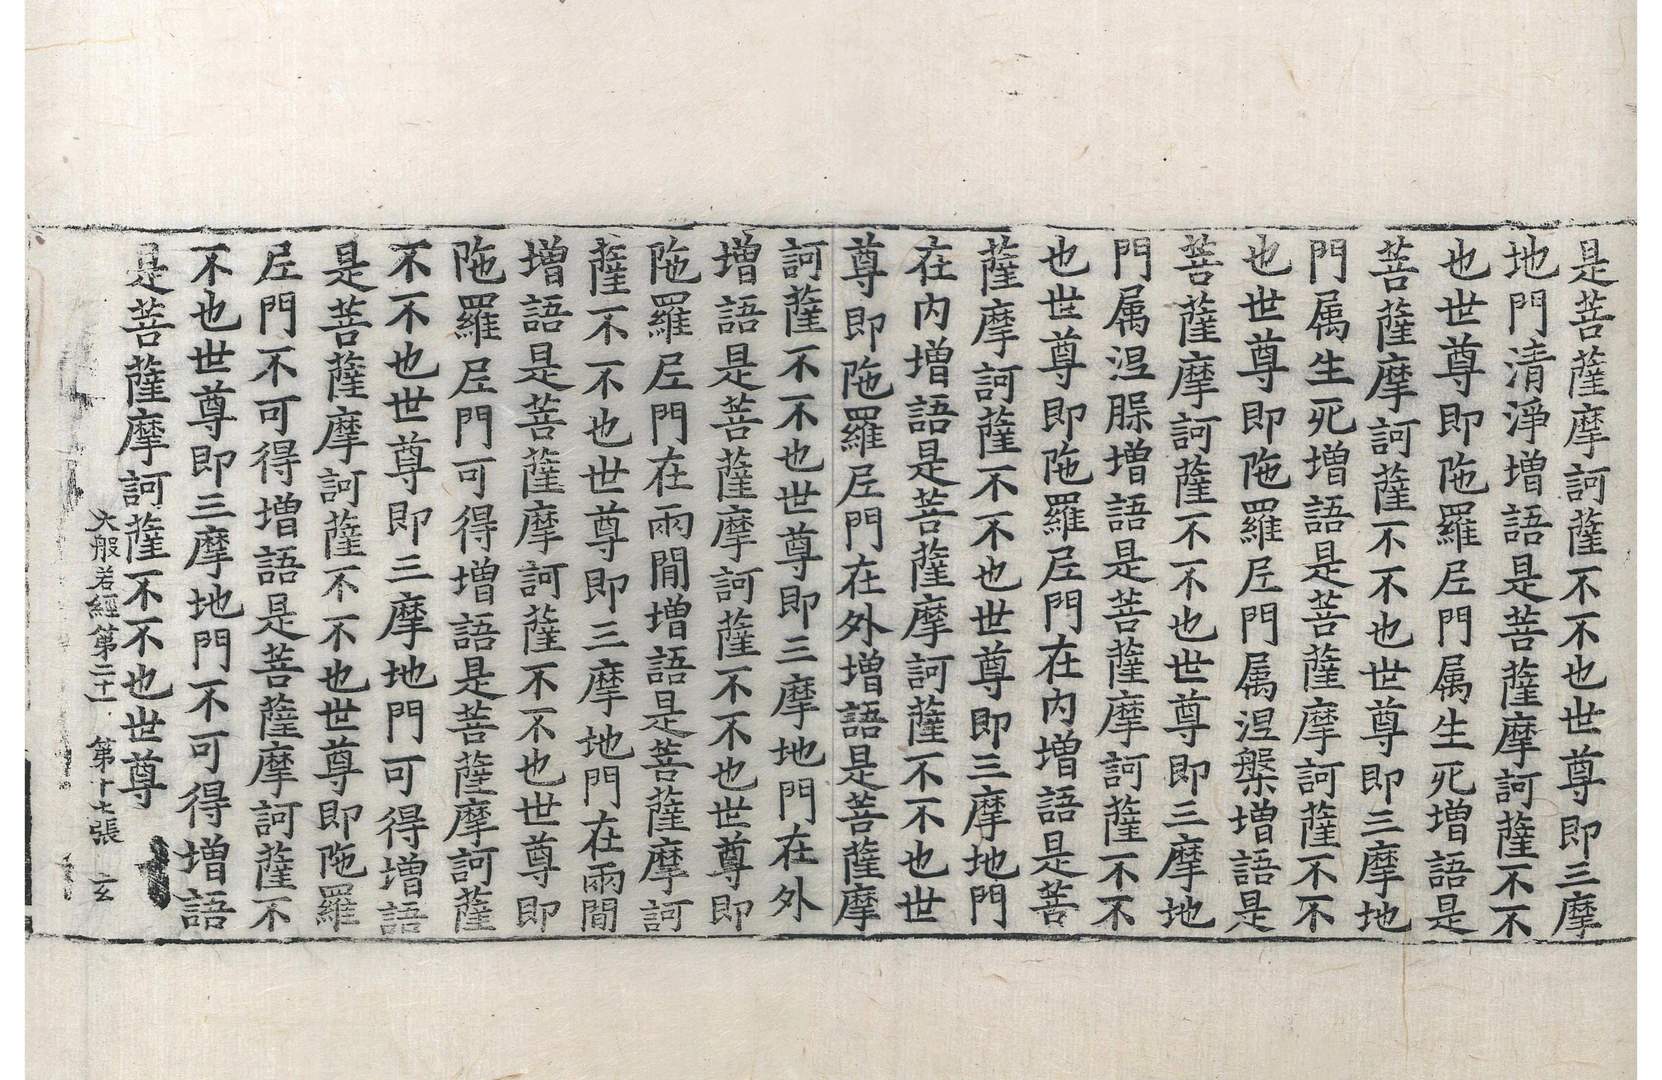 是菩薩摩訶薩不不也世尊即三摩
地門清淨增語是菩薩摩訶薩不不
也世尊即陁羅尼門属生死增語是
菩薩摩訶薩不不也世尊即三摩地
門属生死增語是菩薩摩訶薩不不
也世尊即陁羅尼門属涅槃增語是
菩薩摩訶薩不不也世尊即三摩地
門属涅槃增語是菩薩摩訶薩不不
也世尊即陁羅尼門在内增語是菩
薩摩訶薩不不也世尊即三摩地門
在内增語是菩薩摩訶薩不不也世
尊即陁羅尼門在外增語是菩薩摩
訶薩不不也世尊即三摩地門在外
增語是菩薩摩訶薩不不也世尊即
陁羅尼門在兩間增語是菩薩摩訶
薩不不也世尊即三摩地門在兩間
增語是菩薩摩訶薩不不也世尊即
陁羅尼門可得增語是菩薩摩訶薩
不不也世尊即三摩地門可得增語
是菩薩摩訶薩不不也世尊即陁羅
尼門不可得增語是菩薩摩訶薩不
不也世尊即三摩地門不可得增語
是菩薩摩訶薩不不也世尊
大般若經第二十一 第十七張 玄